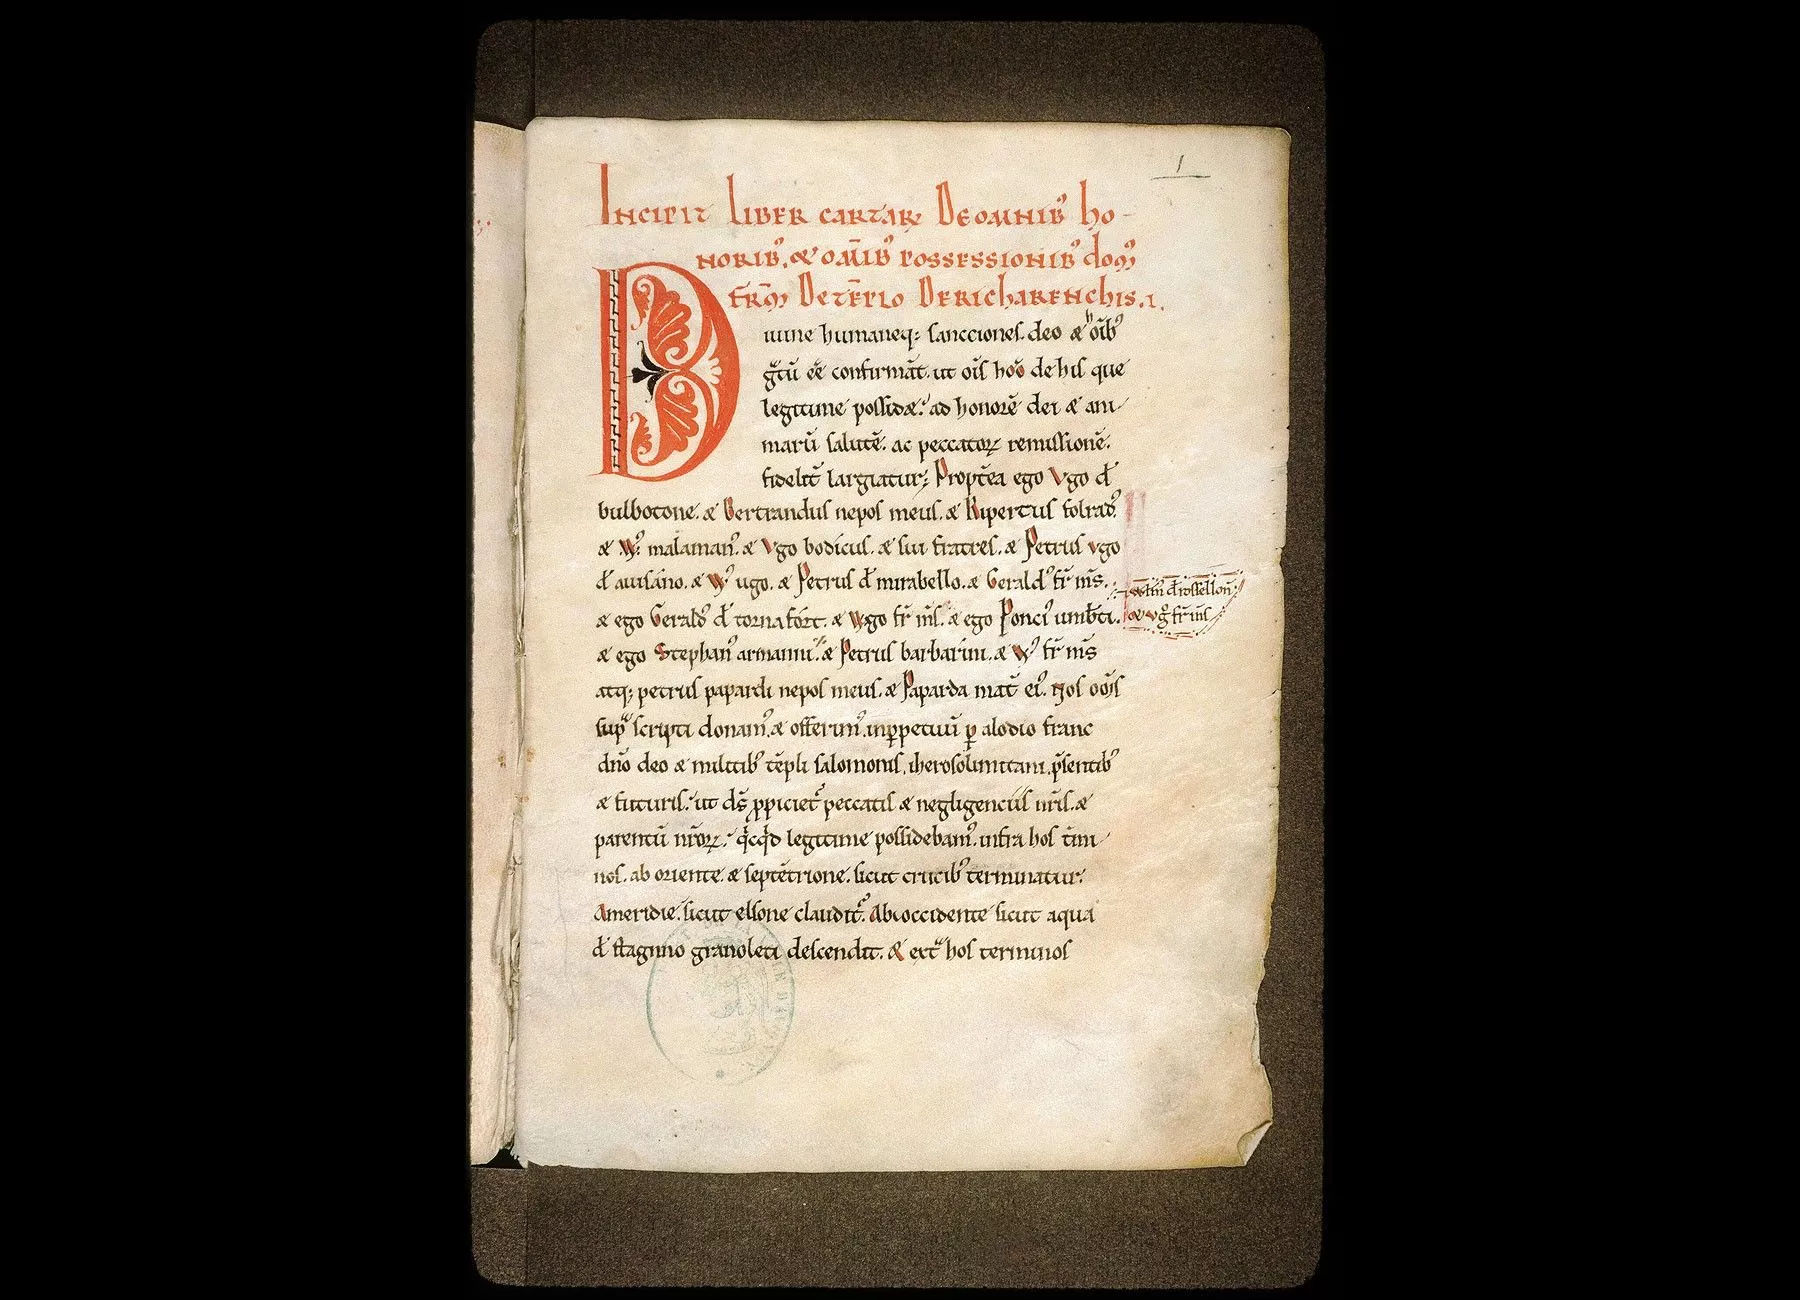 1
Incipit liber cartar De omnib' ho-
norib'. & om̄ib' possessionib' dom'
fr̄m De tēplo De richarenchis. 1.
Diuine humaneq; sancciones. deo & oīb'
confirmāt. ut oīs hoō de his que
legitime possidæ. ad honorē dei & ani
marū salutē. ac peccatoꝝ remissionē.
fidelit̄ largiatur; Propt̄ea ego Vgo đ
bulbotone. & Bertrandus nepos meus. & Ripertus folrad'.
& W' malaman'. & Vgo bodicus. & sui fratres. & Petrus vgo
đ auisāno. & W' ugo. & Petrus đ mirabello. & Gerald' fr̄ m̄s.
& ego Gerald' đ tornafort. & Wgo fr̄ m̄s. & ego Ponci' umb̄ti.
& ego Stephan' armanni. & Petrus barbarini. & W' fr̄ m̄s
atq; petrus papardi nepos meus. & Paparda mat̄ ei'. Nos
sup̄scripti donam'. & offerim'. inꝑpetuū ꝑ alodio franc
dn̄o deo & militib' tēpli salomonis. iherosolimitani. p̄sentib'
& futuris. ut ds̄ ꝓpiciet' peccatis & negligenciis nr̄is. &
parentū nr̄oꝝ. legitime possidebam'. infra hos t̄mi
nos. ab oriente. & septētrione. sicut crucib' terminatur.
Ameridie. sicut elsone claudit'. Aboccidente sicut aqua
đ stagnno granoleti descendit. & ext̄ hos terminos
đ rossellon
& vg' fr̄ m̄s